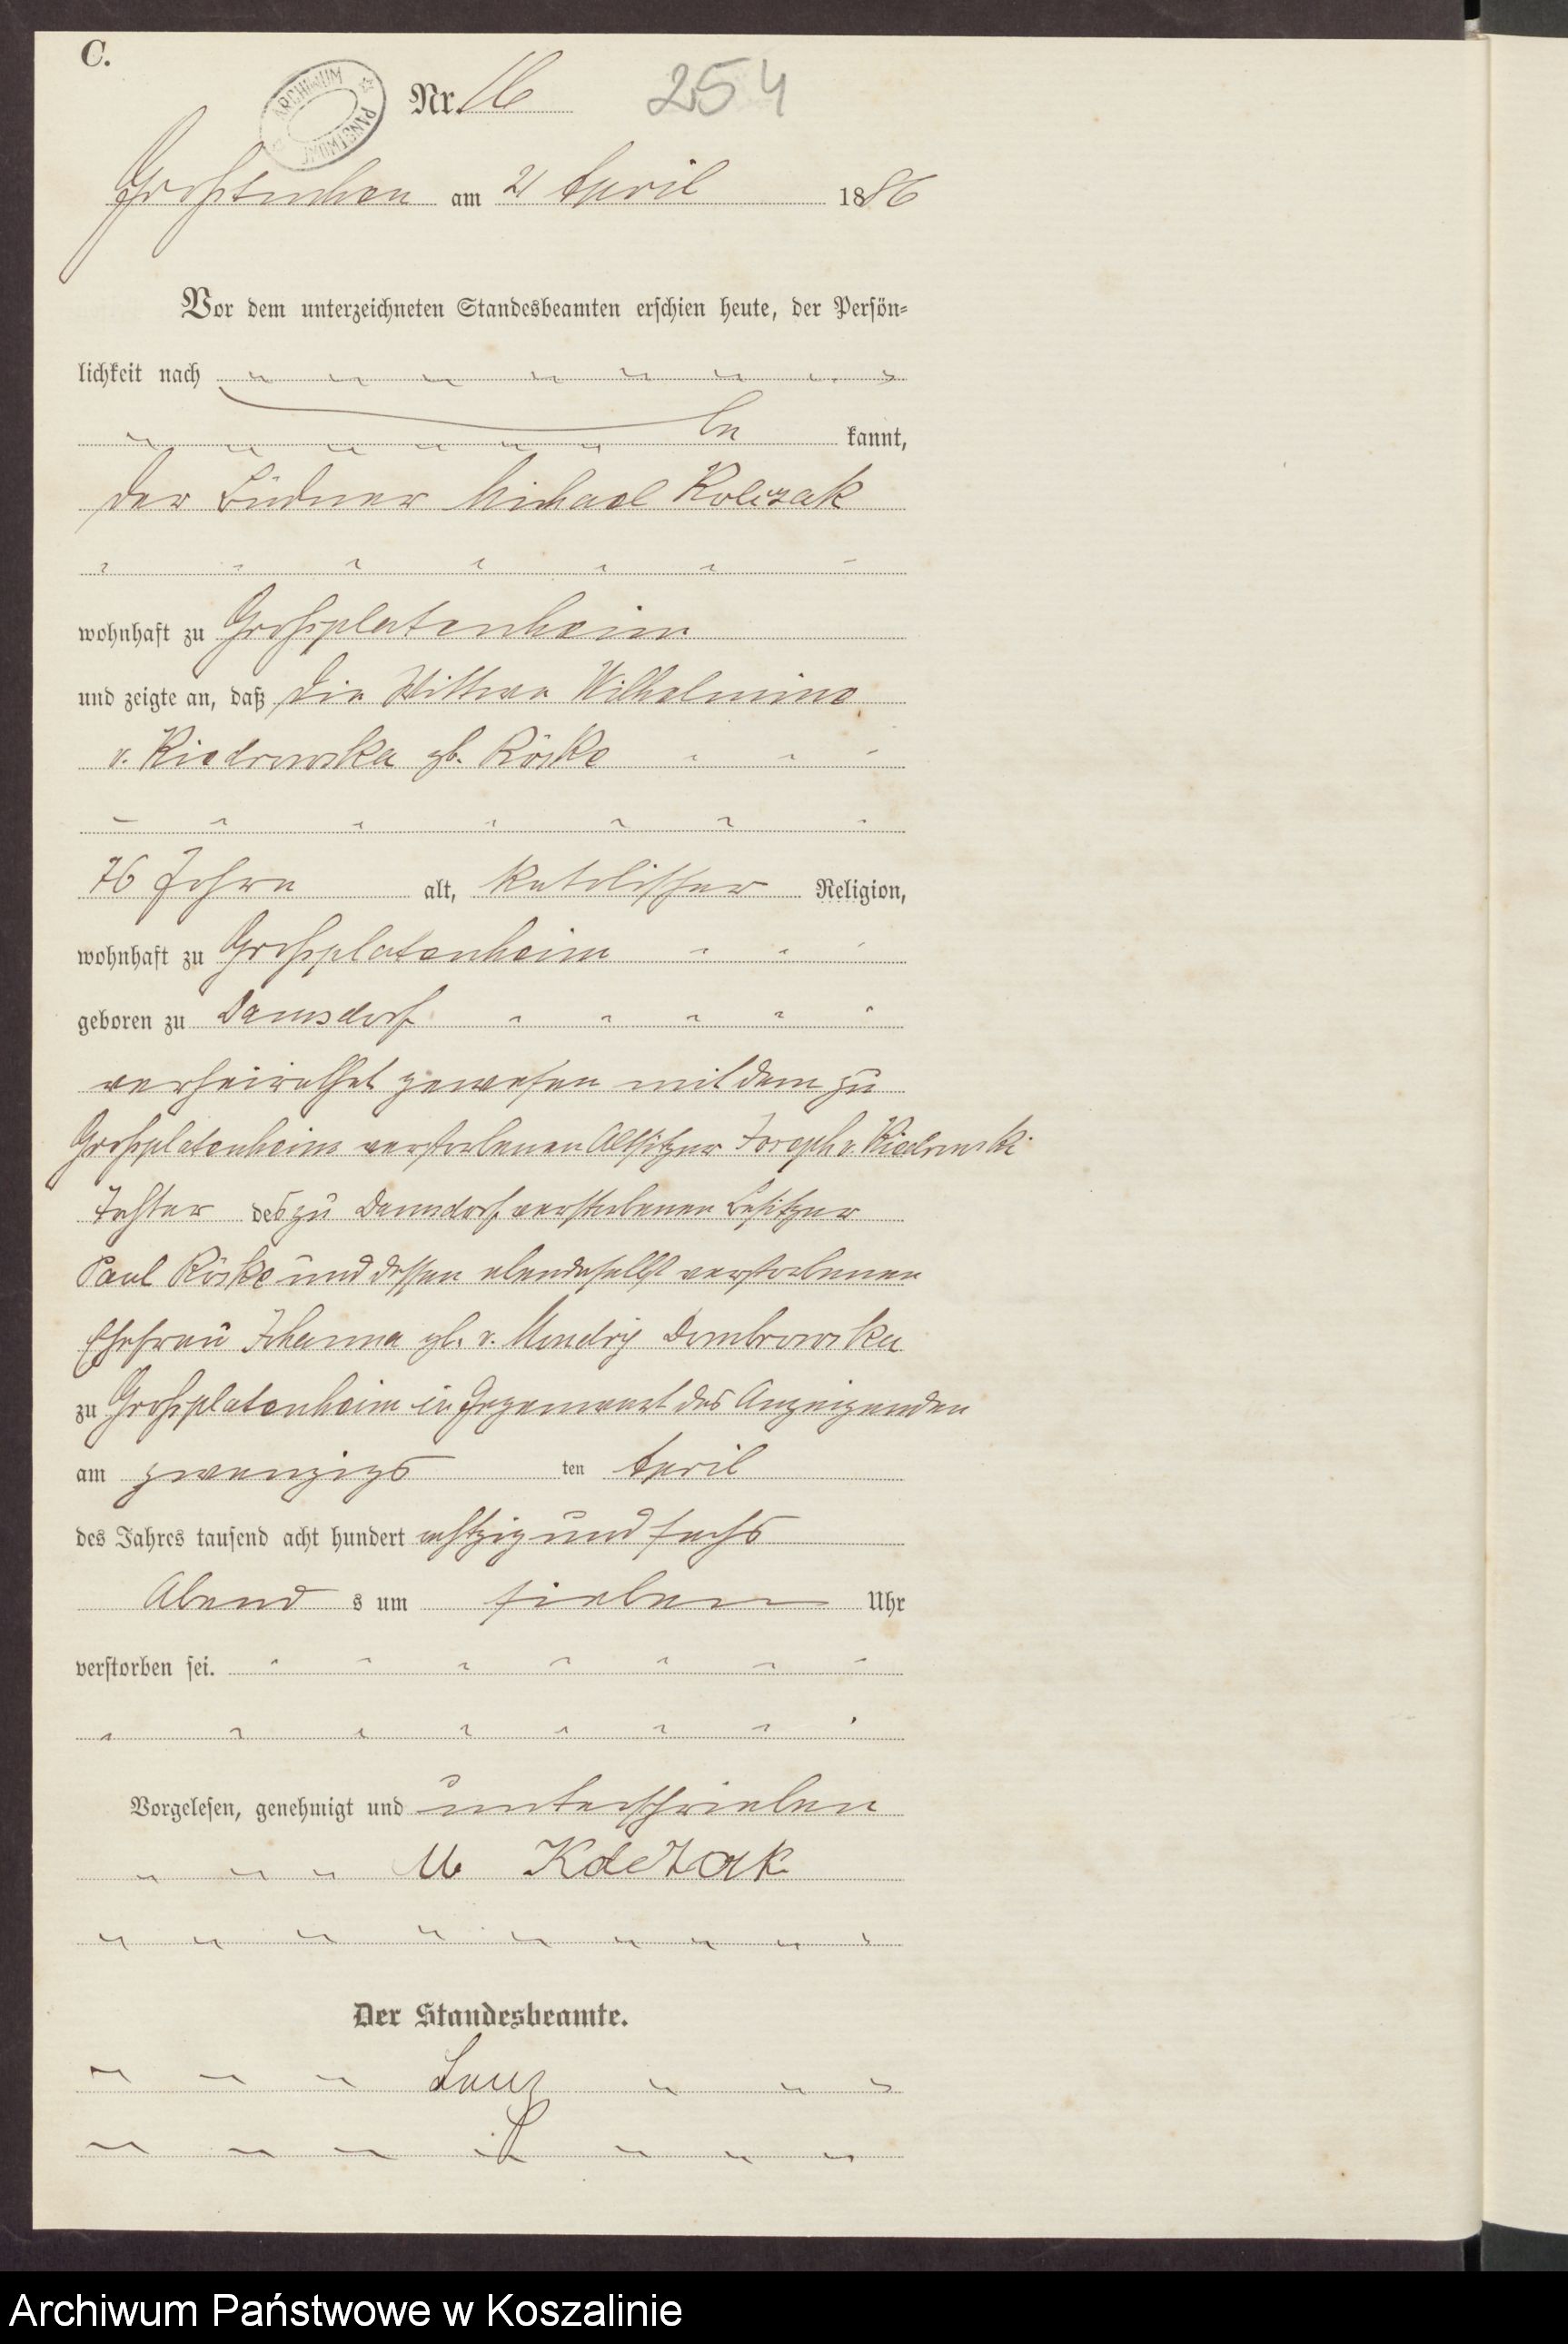 C.
ARCHIWUM PAŃSTWOWE
Nr. 16 254
Großtuchen am 21 April 1886
Vor dem unterzeichneten Standesbeamten erschien heute, der Persön-
lichkeit nach
be kannt,
der Büdner Michael Kolczak
wohnhaft zu Großplatenheim
und zeigte an, daß die Wittwe Wilhelmine
v. Kiedrowska gb. Röske
76 Jahre alt, katolischer Religion,
wohnhaft zu Großplatenheim
geboren zu Damsdorf
verheirathet gewesen mit dem zu
Großplatenheim verstorbenen Altsitzer Joseph v. Kiedrowski
Tochter des zu Damsdorf verstorbenen Besitzer
Paul Röske und dessen ebendaselbst verstorbenen
Ehefrau Johanna gb. v. Mondry Dombrowska
zu Großplatenheim in Gegenwart des Anzeigenden
am zwanzigs ten April
des Jahres tausend acht hundert achtzig und sechs
Abend s um sieben Uhr
verstorben sei.
Vorgelesen, genehmigt und unterschrieben
M Kolczak
Der Standesbeamte.
Archiwum Państwowe w Koszalinie